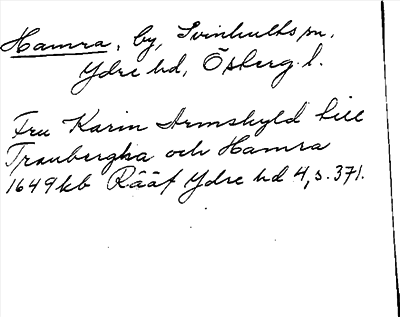 Hamra, by, Svinhults sn,
Ydre hd, Östergl.
Fru Karin Armskyld till
Tranbergha och Hamra
1649 kb Rääf Ydre hd 4, s. 371.